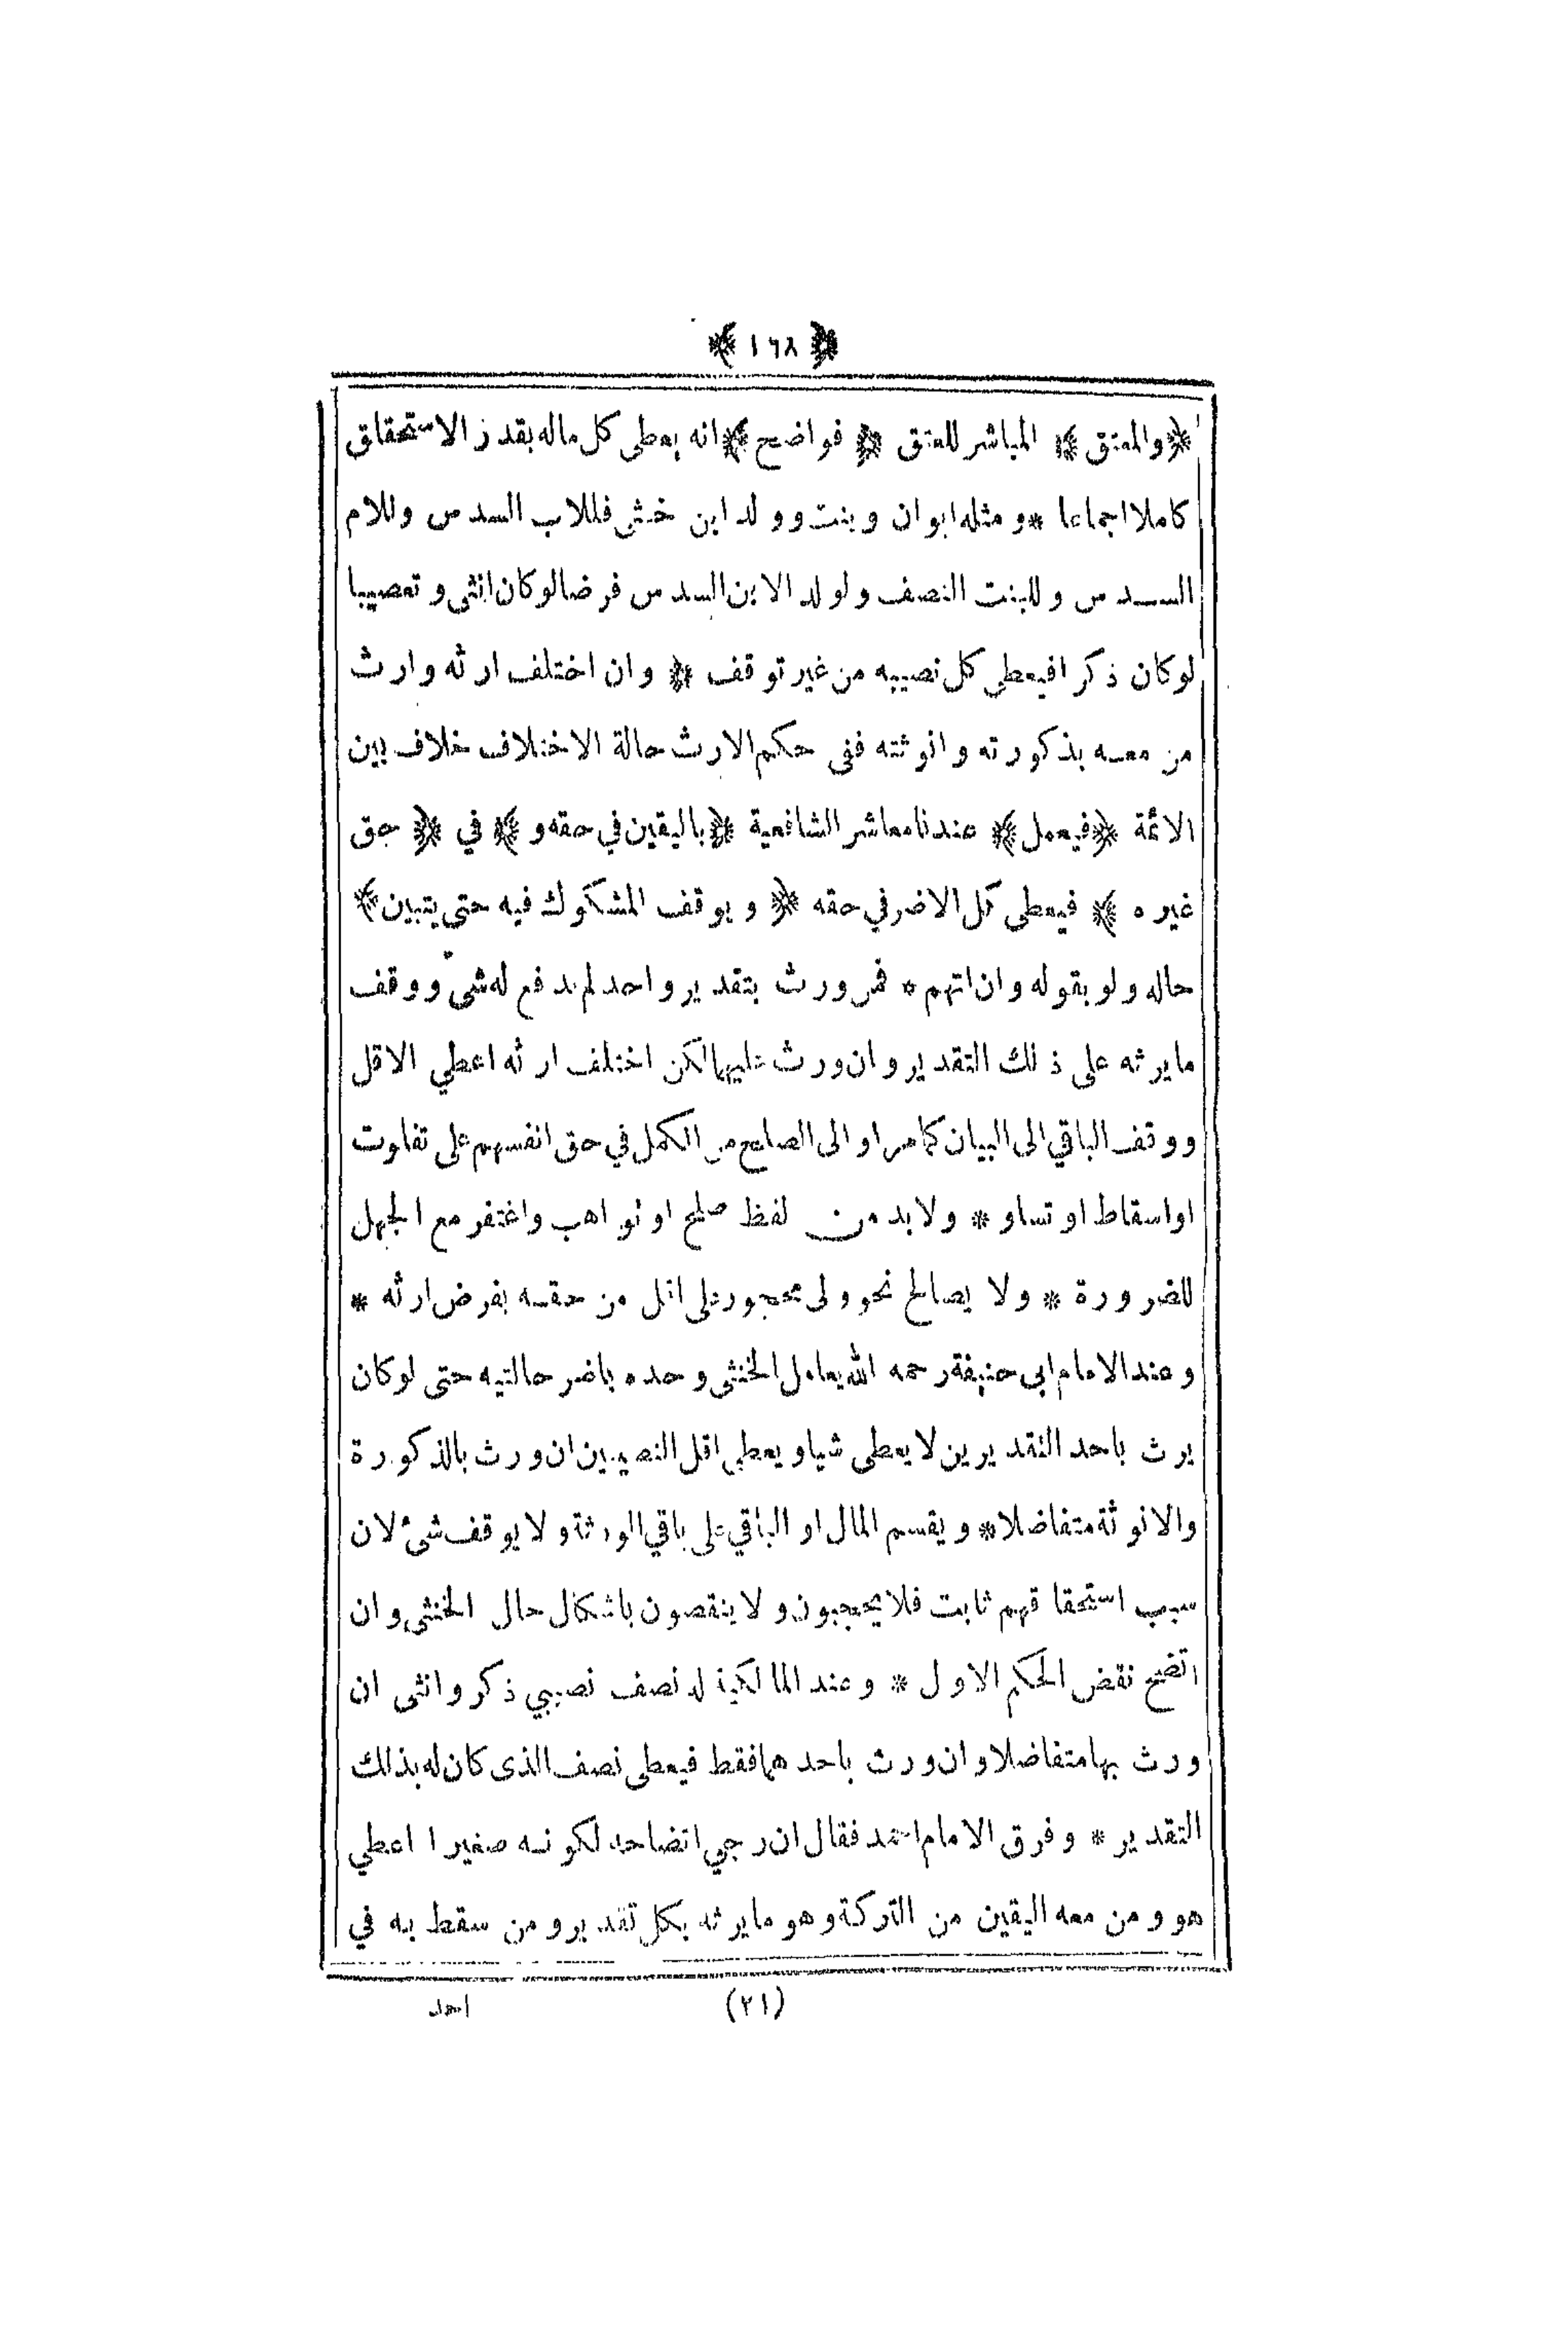 ﴿ ١٦٨ ﴾
﴿ والمعتق ﴾ المباشر للعتق ﴿ فواضح ﴾ انه يعطى كل ماله بقدر الاستحقاق
كاملا اجماعا * ومثله ابوان وبنت وولد ابن خنثى فللاب السدس وللام
السدس وللبنت النصف ولولد الابن السدس فرضا لوكان انثى وتعصيبا
لوكان ذكرا فيعطى كل نصيبه من غير توقف ﴿ وان اختلف ارثه وارث
من معه بذكورته وانوثته ففى حكم الارث حالة الاختلاف خلاف بين
الائمة ﴿ فيعمل ﴾ عندنا معاشر الشافعية ﴿ باليقين في حقه و ﴾ في ﴿ حق
غيره ﴾ فيعطى كل الاضر في حقه ﴿ ويوقف المشكوك فيه حتى يتبين ﴾
حاله ولو بقوله وان اتهم * فمن ورث بتقدير واحد لم يدفع له شئ ووقف
مايرثه على ذلك التقدير وان ورث عليهما لكن اختلف ارثه اعطي الاقل
ووقف الباقي الى البيان كمامر او الى الصلح من الكمل في حق انفسهم على تفاوت
او اسقاط او تساو * ولابد من لفظ صلح او تواهب واغتفر مع الجهل
للضرورة * ولا يصالح نحو ولى محجور على اقل من حقه بفرض ارثه *
وعند الامام ابى حنيفة رحمه الله يعامل الخنثى وحده باضر حالتيه حتى لوكان
يرث باحد التقديرين لايعطى شيا ويعطى اقل النصيبين ان ورث بالذكورة
والانوثة متفاضلا * ويقسم المال او الباقي على باقي الورثة ولا يوقف شئ لان
سبب استحقاقهم ثابت فلا يحجبون ولا ينقصون باشكال حال الخنثى وان
اتضح نقض الحكم الاول * وعند المالكية له نصف نصيبي ذكر وانثى ان
ورث بهما متفاضلا وان ورث باحدهما فقط فيعطى نصف الذى كان له بذلك
التقدير * وفرق الامام احمد فقال ان رجي اتضاحه لكونه صغيرا اعطي
هو ومن معه اليقين من التركة وهو مايرثه بكل تقدير ومن سقط به في
(٢١)
احمد